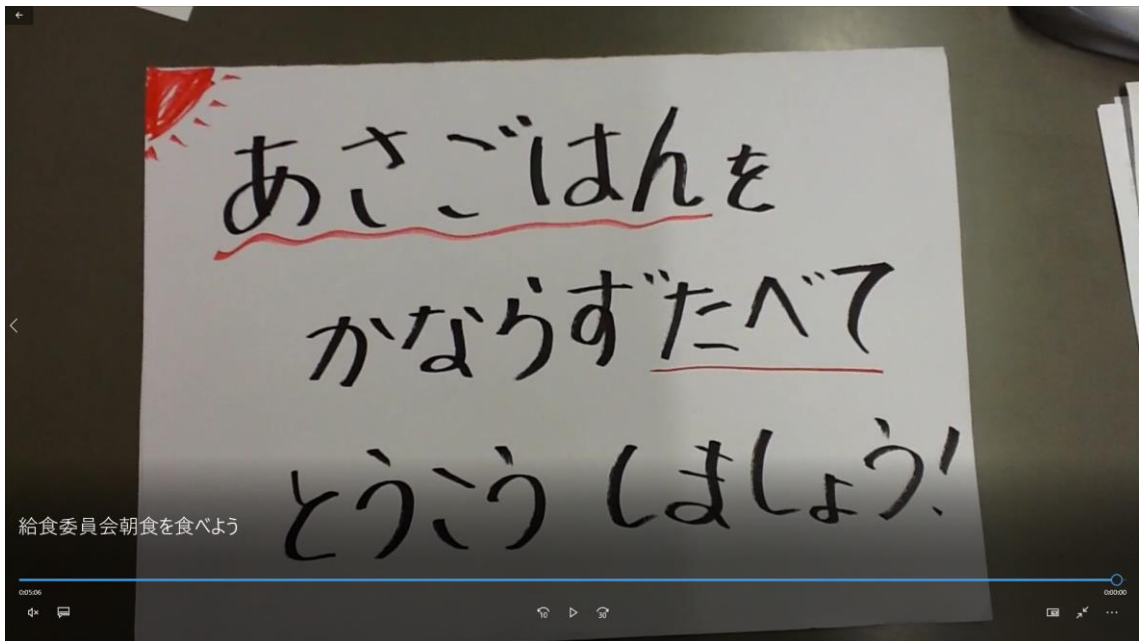 あさごはんを
かならずたべて
とうこうしましょう!
給食委員会朝食を食べよう
0:05:06
0:00:00
10
30